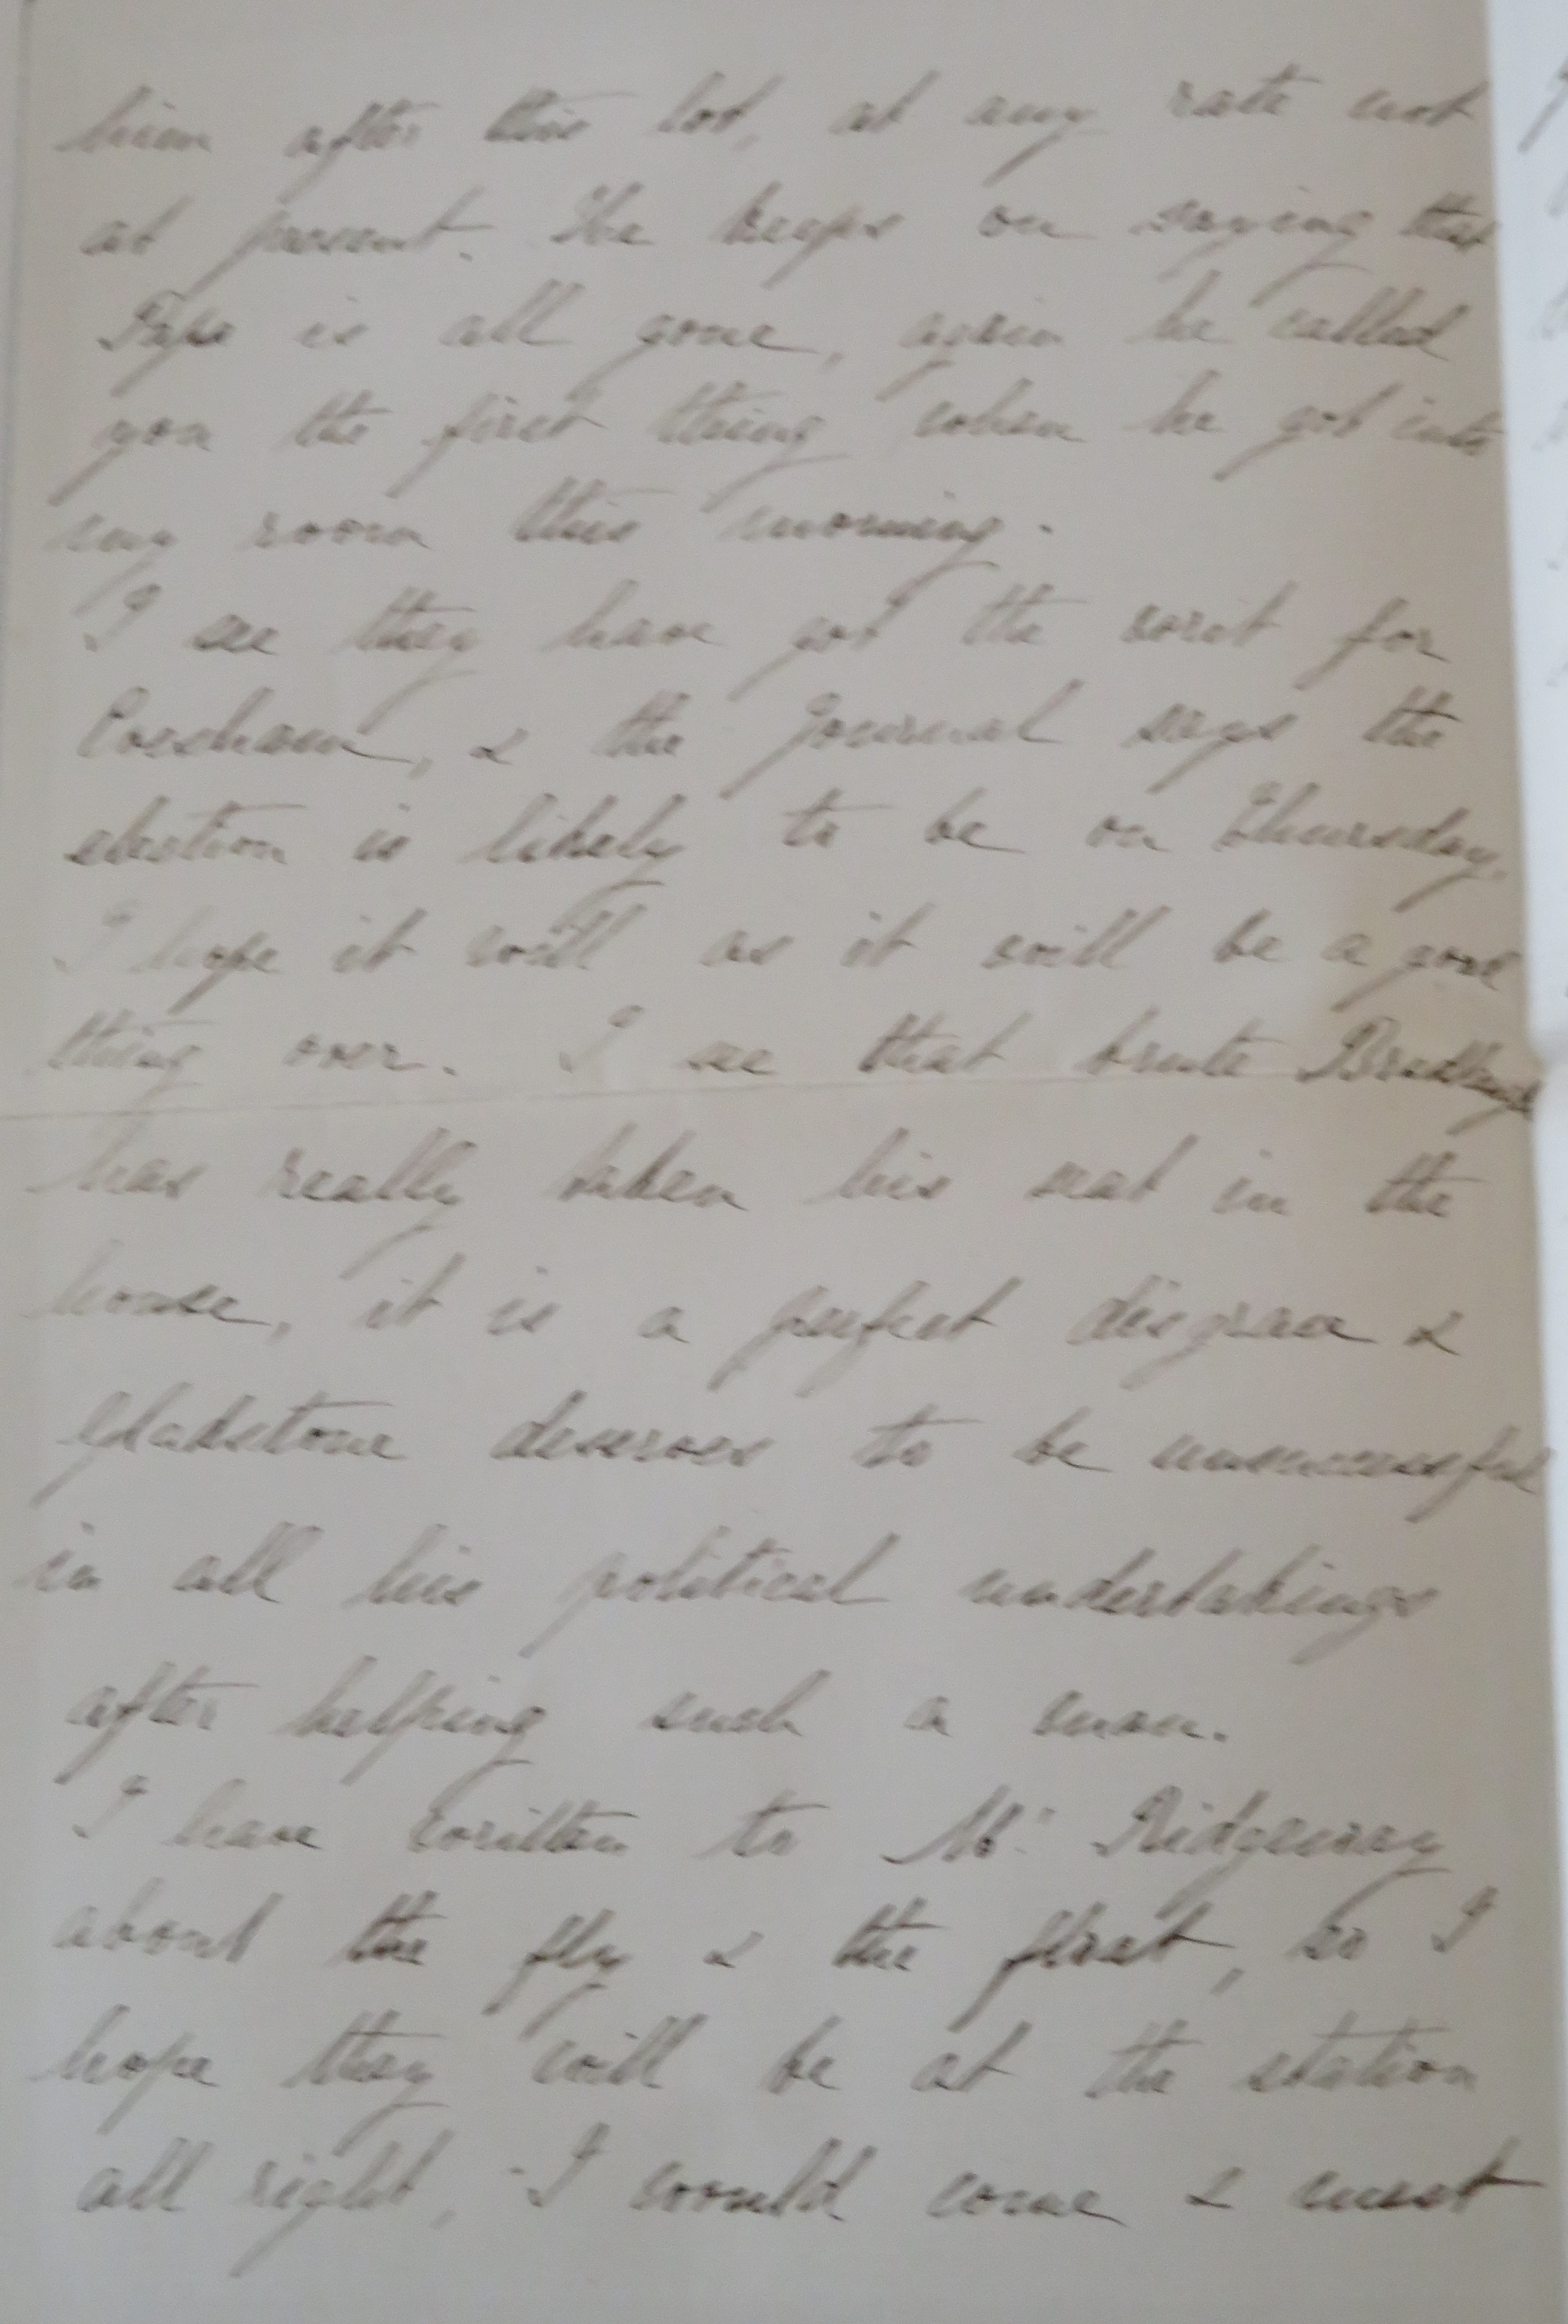 him after this lot, at any rate not
at present. He keeps on saying that
Papa is all gone, again he called
you the first thing when he got into
my room this morning.
I see they have got the writ for
Evesham, & the Journal says the
election is likely to be on Thursday,
I hope it will as it will be a good
thing over. I see that brute Bradlaugh
has really taken his seat in the
house, it is a perfect disgrace &
Gladstone deserves to be unsuccessful
in all his political undertakings
after helping such a man.
I have written to Mr. Ridgeway
about the fly & the float, so I
hope they will be at the station
all right, I would come & meet